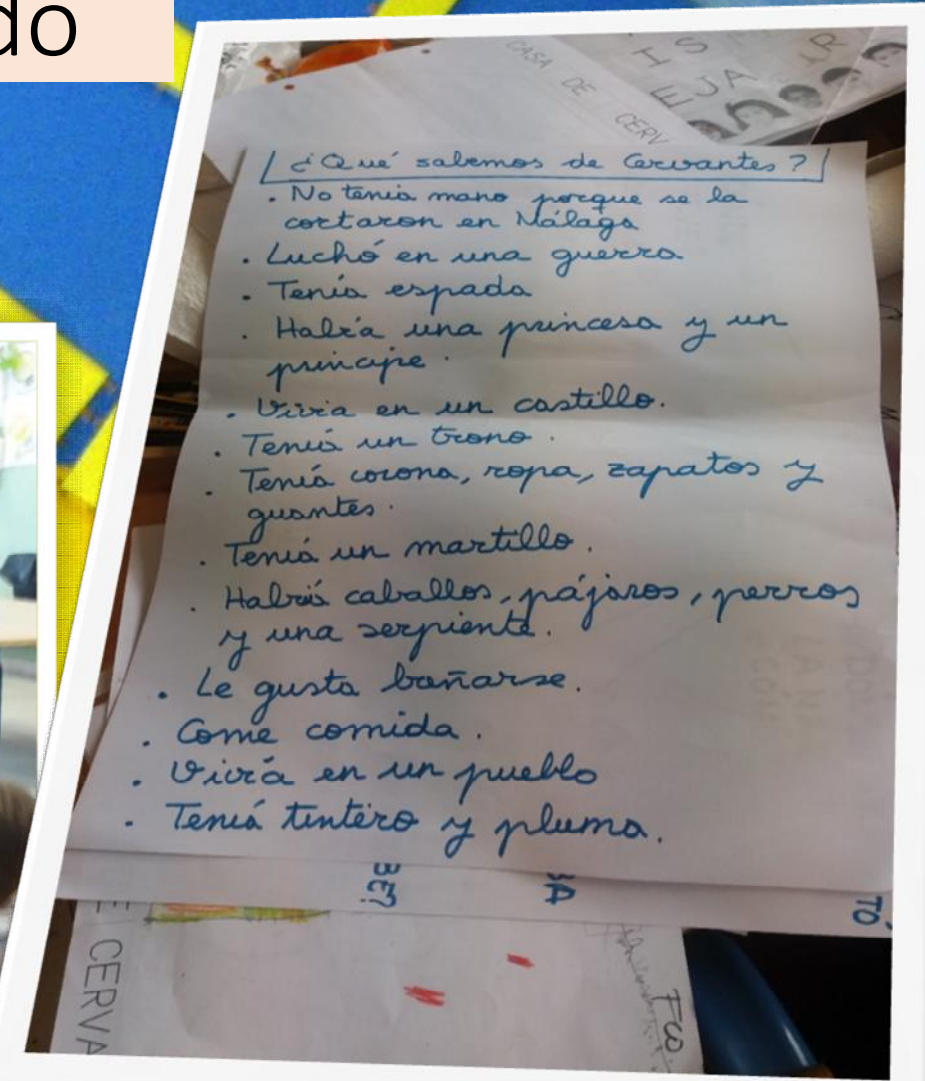 do
CASA DE CERV
¿Qué sabemos de Cervantes?
. No tenía mano porque se la
cortaron en Málaga
. Luchó en una guerra
. Tenía espada
. Había una princesa y un
príncipe.
. Vivía en un castillo.
. Tenía un trono.
. Tenía corona, ropa, zapatos y
guantes.
. Tenía un martillo.
. Había caballos, pájaros, perros
y una serpiente.
. Le gusta bañarse.
. Come comida.
. Vivía en un pueblo
. Tenía tintero y pluma.
BE?
TÓ
E CERVA
Fco